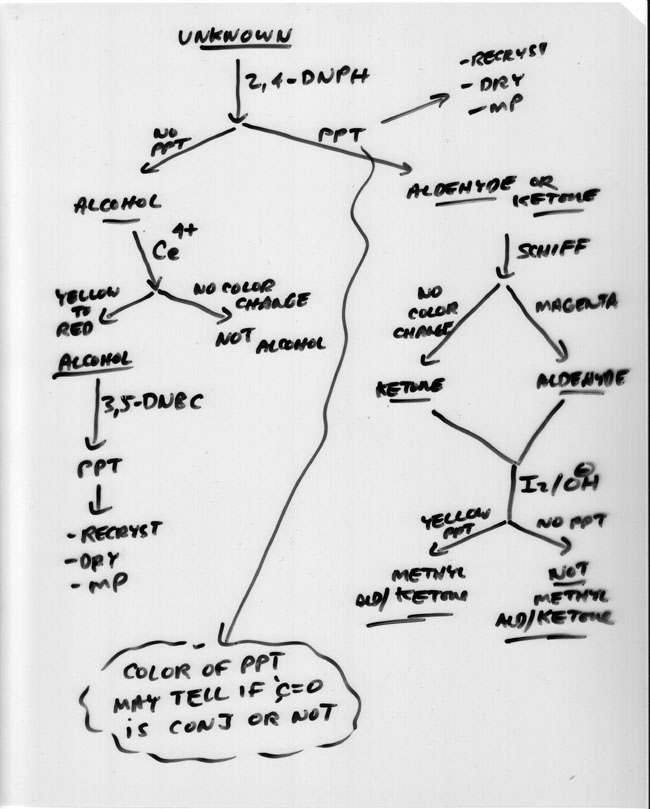 UNKNOWN
2,4-DNPH
-RECRYST
-DRY
-MP
NO
PPT
PPT
ALCOHOL
ALDEHYDE OR
KETONE
Ce4+
SCHIFF
YELLOW
TO
RED
NO COLOR
CHANGE
NOT ALCOHOL
NO
COLOR
CHANGE
MAGENTA
ALCOHOL
KETONE
ALDEHYDE
3,5-DNBC
PPT
I2/OH⊖
YELLOW
PPT
NO PPT
-RECRYST
-DRY
-MP
METHYL
ALD/KETONE
NOT
METHYL
ALD/KETONE
COLOR OF PPT
MAY TELL IF C=O
iS CONJ OR NOT